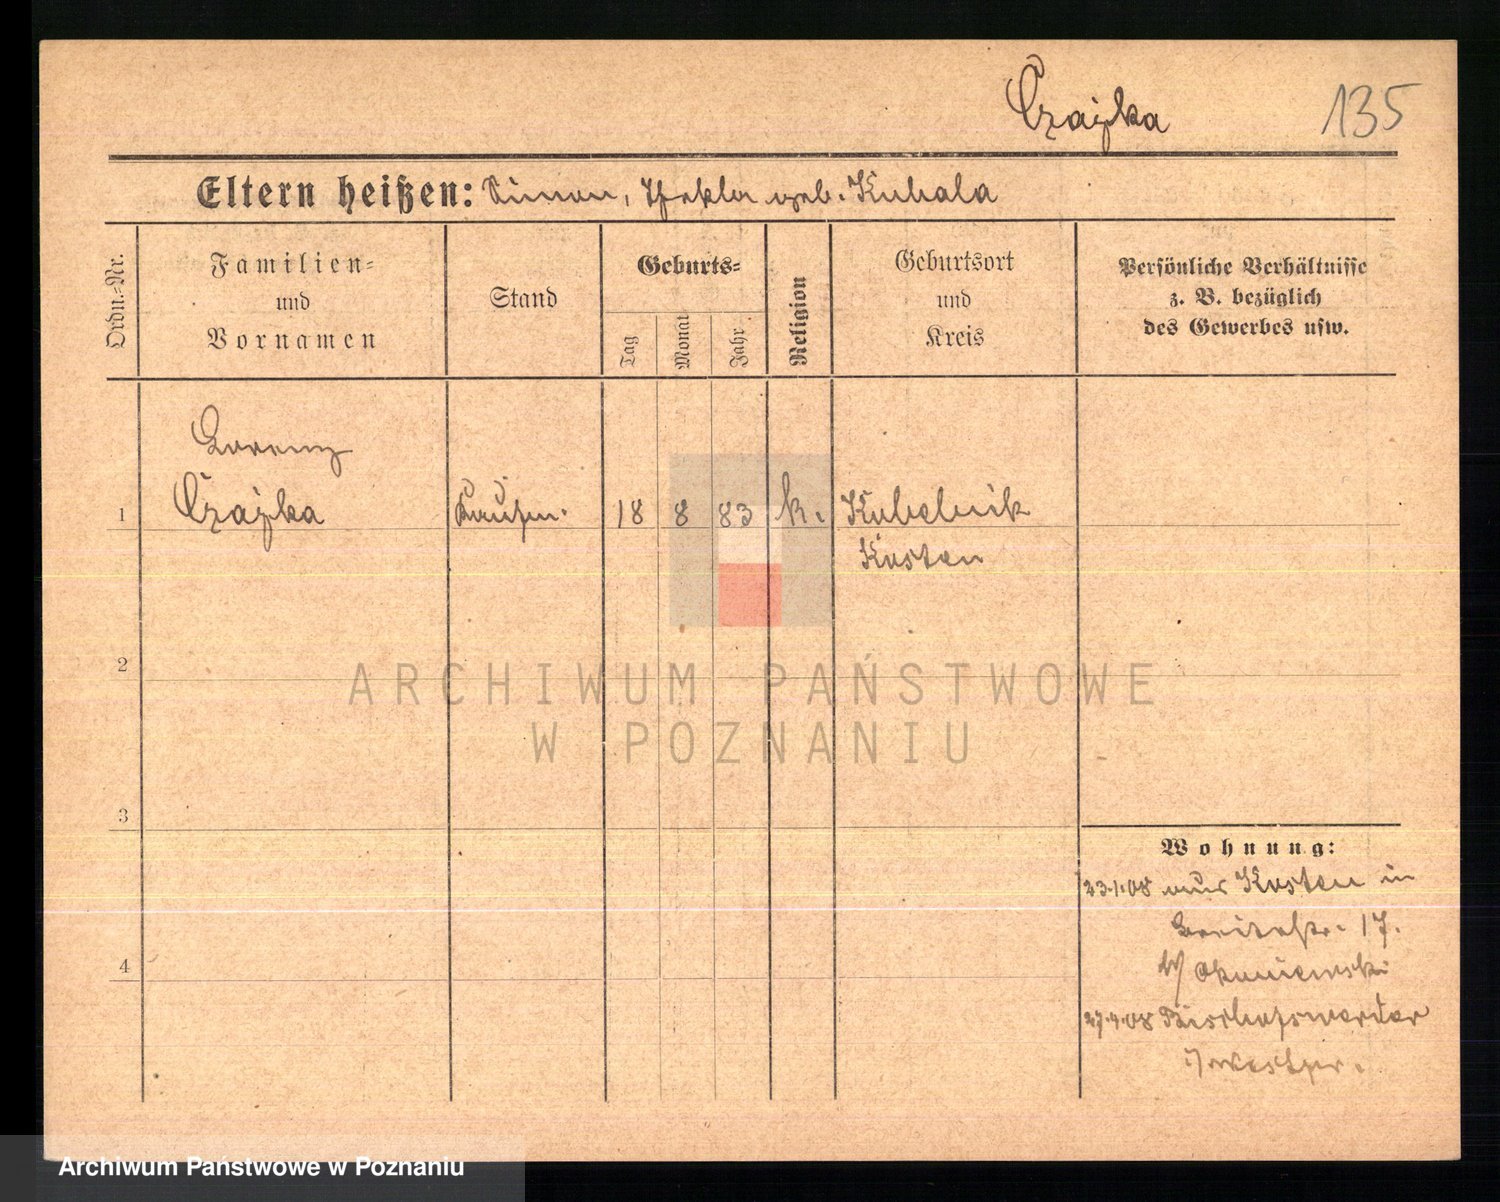 Czajka 135
Eltern heißen: Simon, Thekla geb. Kubala
Ordn.-Nr.
Familien-
und
Vornamen
Stand
Geburts-
Tag
Monat
Jahr
Religion
Geburtsort
und
Kreis
Persönliche Verhältnisse
z. B. bezüglich
des Gewerbes usw.
Lorenz
1 Czajka Kaufm. 18 8 83 k. Kobelnik
Kosten
2
ARCHIWUM PAŃSTWOWE
W POZNANIU
3
Wohnung:
23.1.08 aus Kosten in
Breitestr. 17.
b/ Okuniewski
4
27.4.08 Bischofswerder
i/ Westpr.
Archiwum Państwowe w Poznaniu